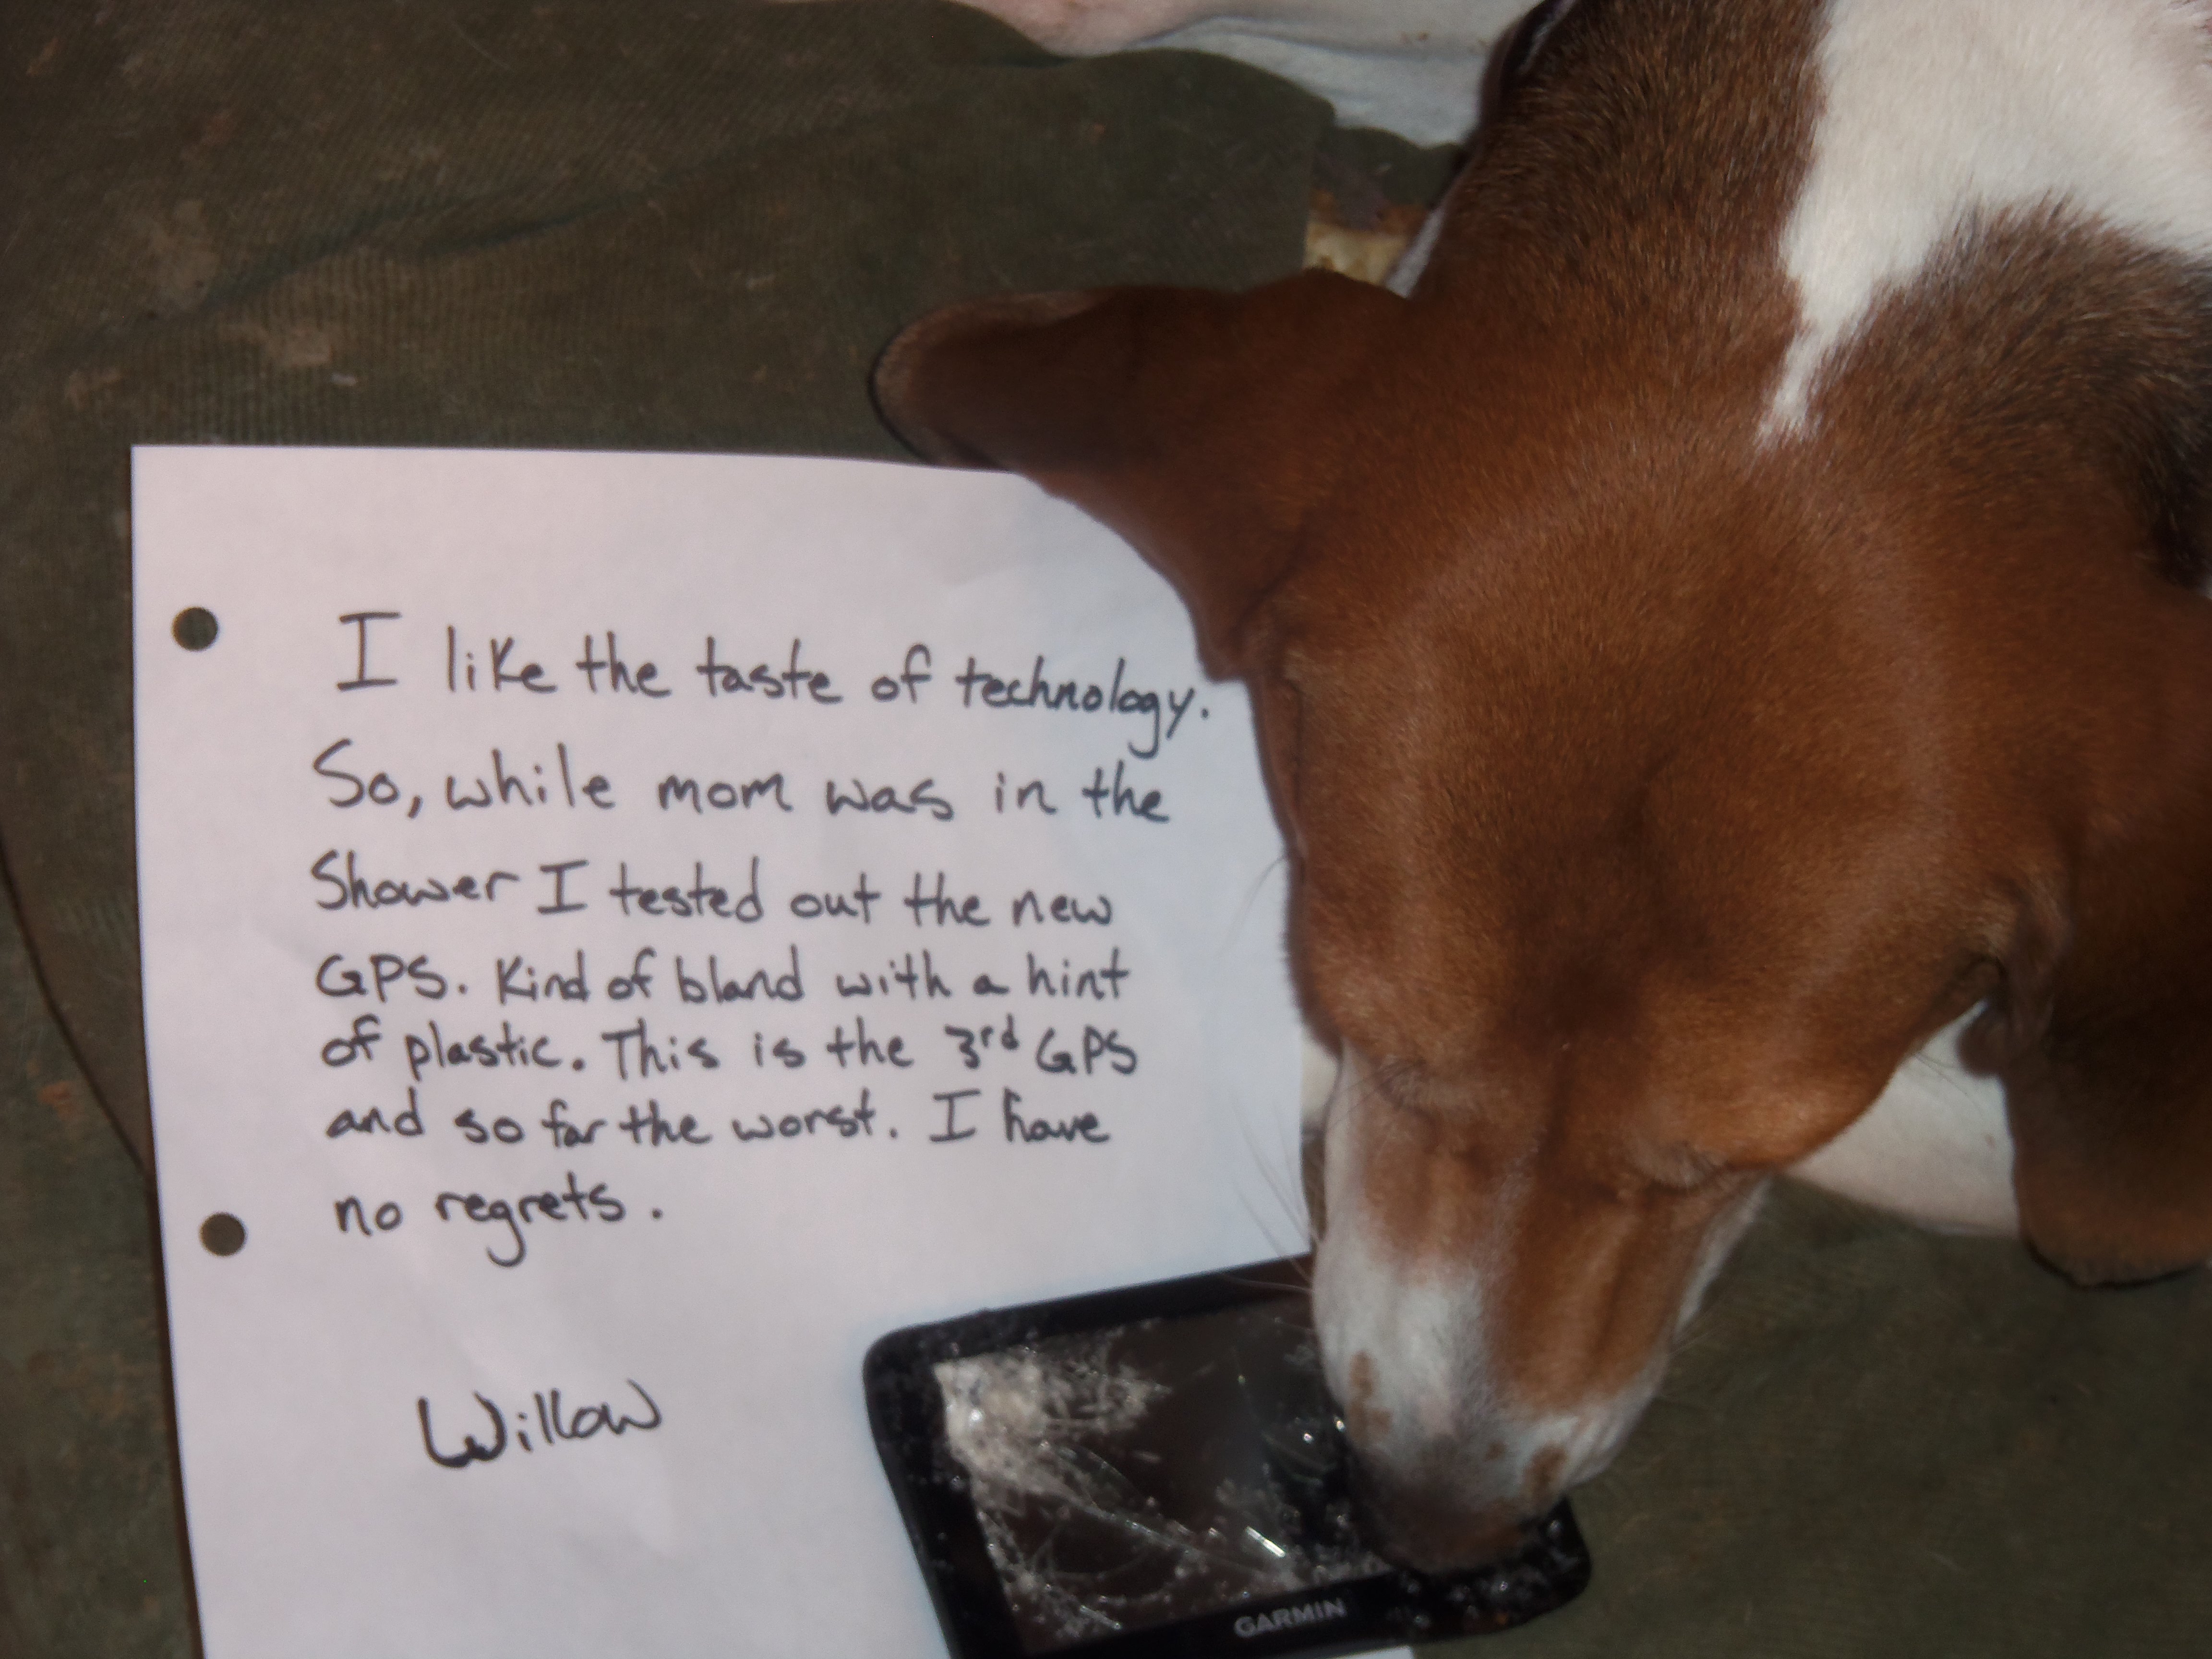 I like the taste of technology.
So, while mom was in the
Shower I tested out the new
GPS. Kind of bland with a hint
of plastic. This is the 3rd GPS
and so far the worst. I have
no regrets.
Willow
GARMIN